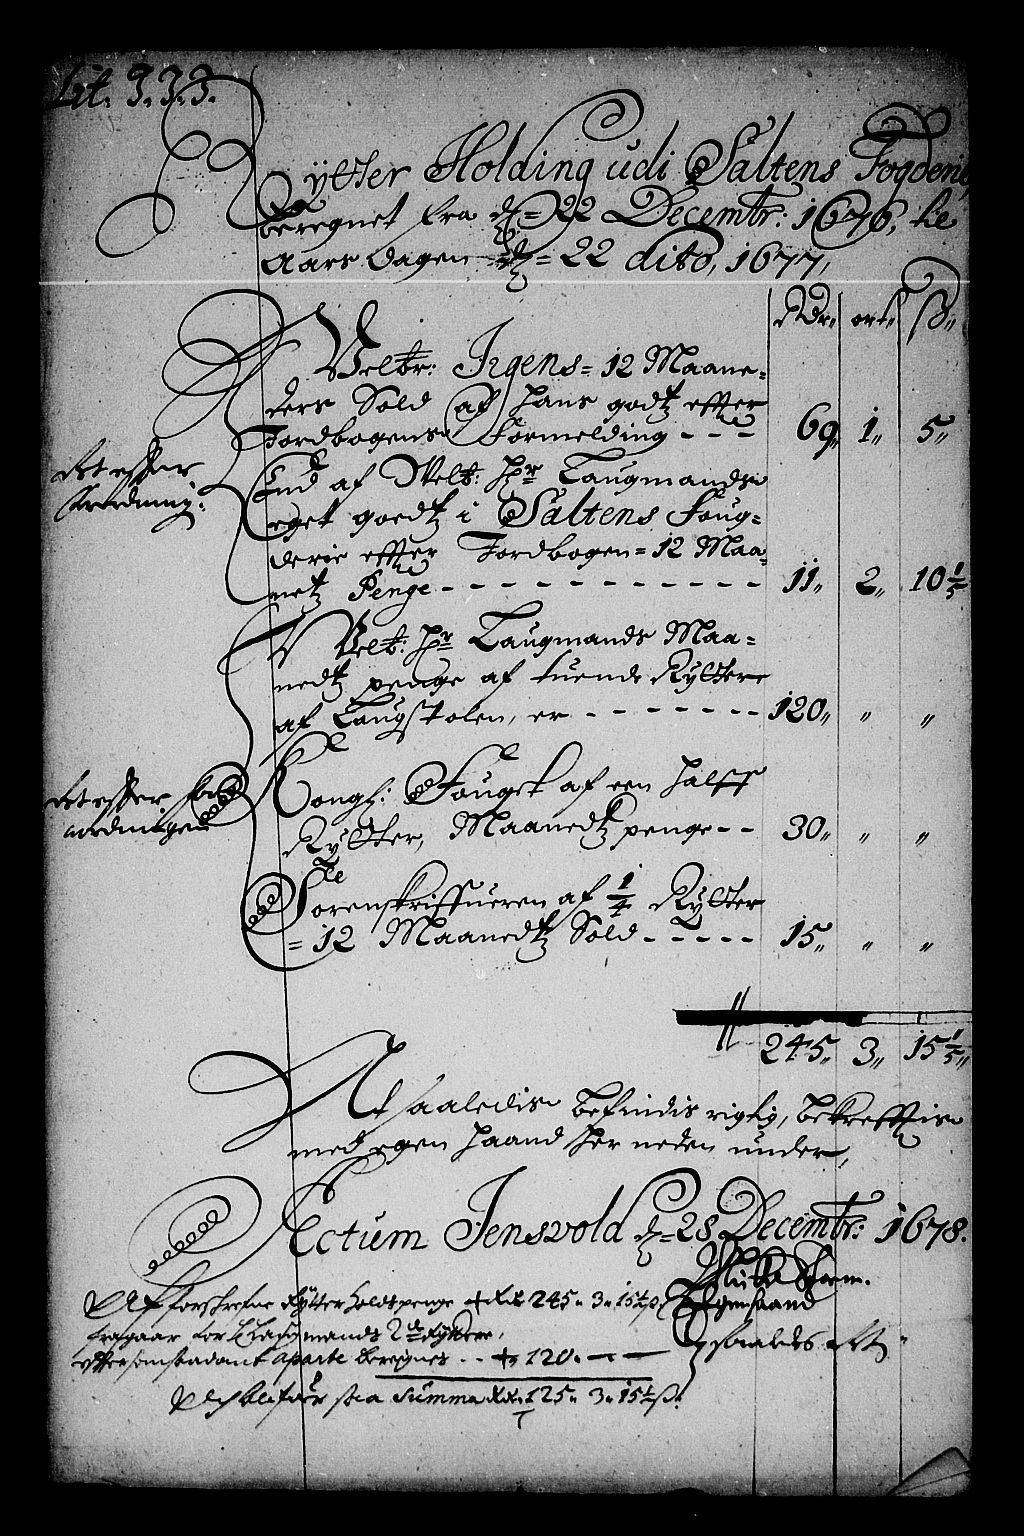 Lit. 3.3.3.
Rytter Holding udi Saltens Fogderie
beregnet fra d = 22 Decembr: 1676, til
Aars dagen d = 22 dito, 1677,
Rdr, ort, ß,
Velbr: Irgens = 12 Maane-
ders Sold af hans godtz effter
Jordbogens Formelding - - - 69, 1, 5,
End af Welb: Hr Laugmands
eget goedtz i Saltens Foug-
derie effter Jordbogen = 12 Maa-
netz Penge - - - - 11, 2, 10 1/5
Velb: Hr Laugmands Maa-
nedtz penge af tuende Ryttere
af Laugstolen, er - - - - 120, " "
Kongl: Fouget af een halff
Rytter, Maanedtz penge - - 30, " "
Sorenskriffueren af 1/4 Rytter
= 12 Maanedtz Sold - - - - 15, " "
245, 3, 15 1/5,
At saaledis befindis rigtig, bekrefftis
med egen haand her neden under,
Actum Jensvold d = 28 Decembr: 1678.
Egenhaand
Aff forschrefne Rytterholds penge Rdr 245. 3. 15 1/5 ß,
fragaar for Laugmands 2de Ryttere,
aparte beregnes - - 120. - -
Bliffuer saa Summa Rdr. 125. 3. 15 1/5 ß.